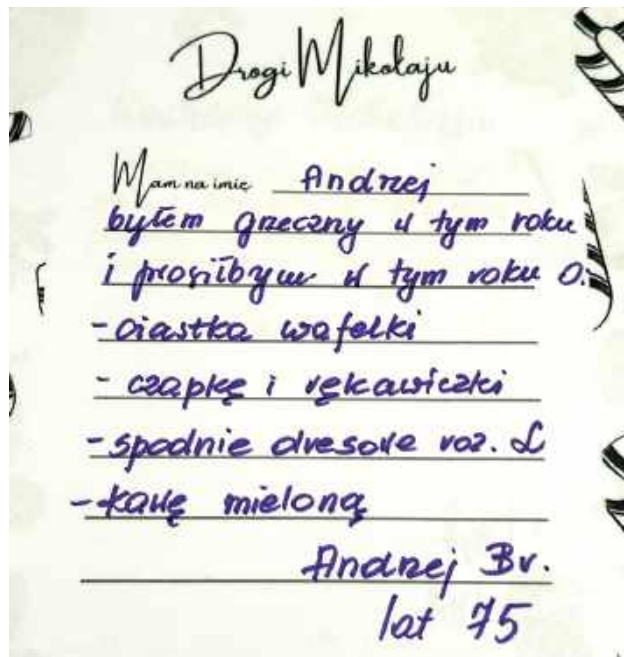 Drogi Mikołaju
Mam na imię Andrzej
byłem grzeczny w tym roku
i prosiłbym w tym roku o:
- ciastka wafelki
- czapkę i rękawiczki
- spodnie dresowe roz. L
- kawę mieloną
Andrzej Br.
lat 75